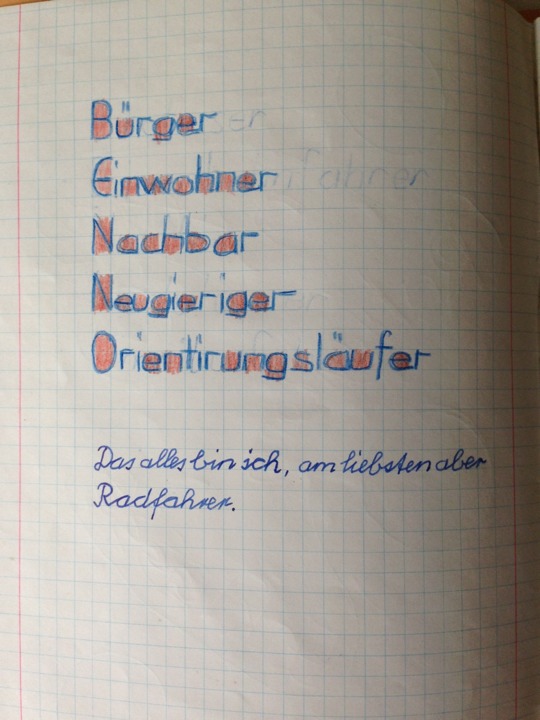 Bürger
Einwohner
Nachbar
Neugieriger
Orientirungsläufer
Das alles bin ich, am liebsten aber
Radfahrer.